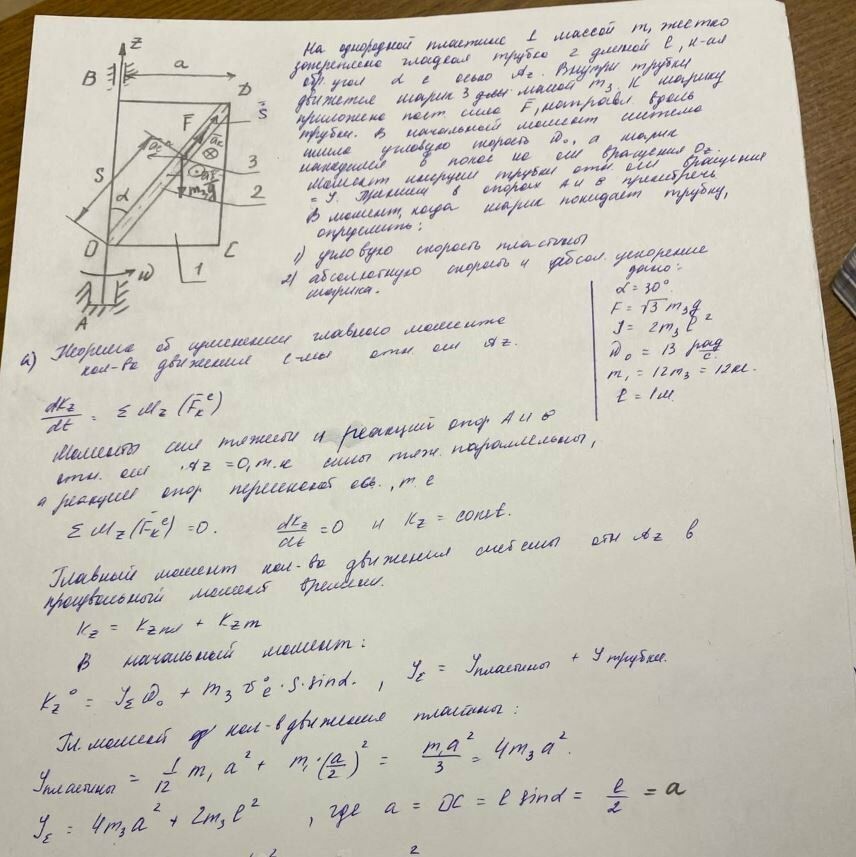 z
B
a
D
F
S
3
2
S
α
m₃g
O
C
1
ω
A
На однородной пластине 1 массой m, жестко
закреплена гладкая трубка 2 длиной l,
угол α с осью Az. Внутри трубки
движется шарик 3 массой m₃. К шарику
приложена пост сила F̄, направл. вдоль
трубки. В начальный момент система
имела угловую скорость ω₀, а шарик
находился в покое на оси вращения
Момент инерции трубки отн. оси вращения
= J. Трением в опорах A и B пренебречь
В момент, когда шарик покидает трубку,
определить:
1) угловую скорость пластины
2) абсолютную скорость и абсол. ускорение
шарика.
дано:
α = 30°
F = √3 m₃g
J = 2m₃l²
ω₀ = 13 рад/с.
m₁ = 12m₃ = 12кг.
l = 1м.
а) Теорема об изменении главного момента
кол-ва движения с-мы отн. оси Az.
dKz/dt = Σ Mz (F̄ₖᵉ)
Моменты сил тяжести и реакций опор A и B
отн. оси Az = 0, т.к силы тяж. параллельны,
а реакции опор пересекают ось, т е
Σ Mz (F̄ₖᵉ) = 0. dKz/dt = 0 и Kz = const.
Главный момент кол-ва движения системы отн Az в
произвольный момент времени.
Kz = Kzпл + Kzт
В начальный момент:
Kz⁰ = J_Σ ω₀ + m₃ v⁰ₑ · S · sinα. , J_Σ = Jпластины + Jтрубки.
Гл. момент кол-в движения пластины:
Jпластины = 1/12 m₁ a² + m₁ · (a/2)² = m₁a²/3 = 4m₃ a².
J_Σ = 4m₃a² + 2m₃l² , где a = OC = l sinα = l/2 = a